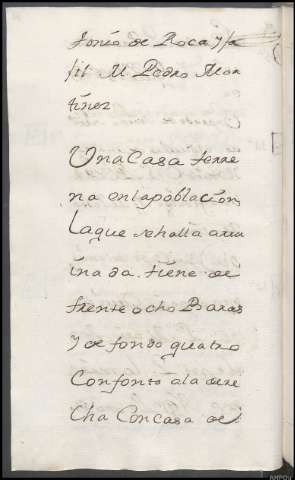 tonio de Roca y
fil M. Pedro Mar
tinez
Una Casa terre
na enlapoblación,
laque sehalla arru
inada. tiene de
frente ocho Baras
y de fondo quatro
Confonta ala dere
cha Concasa de